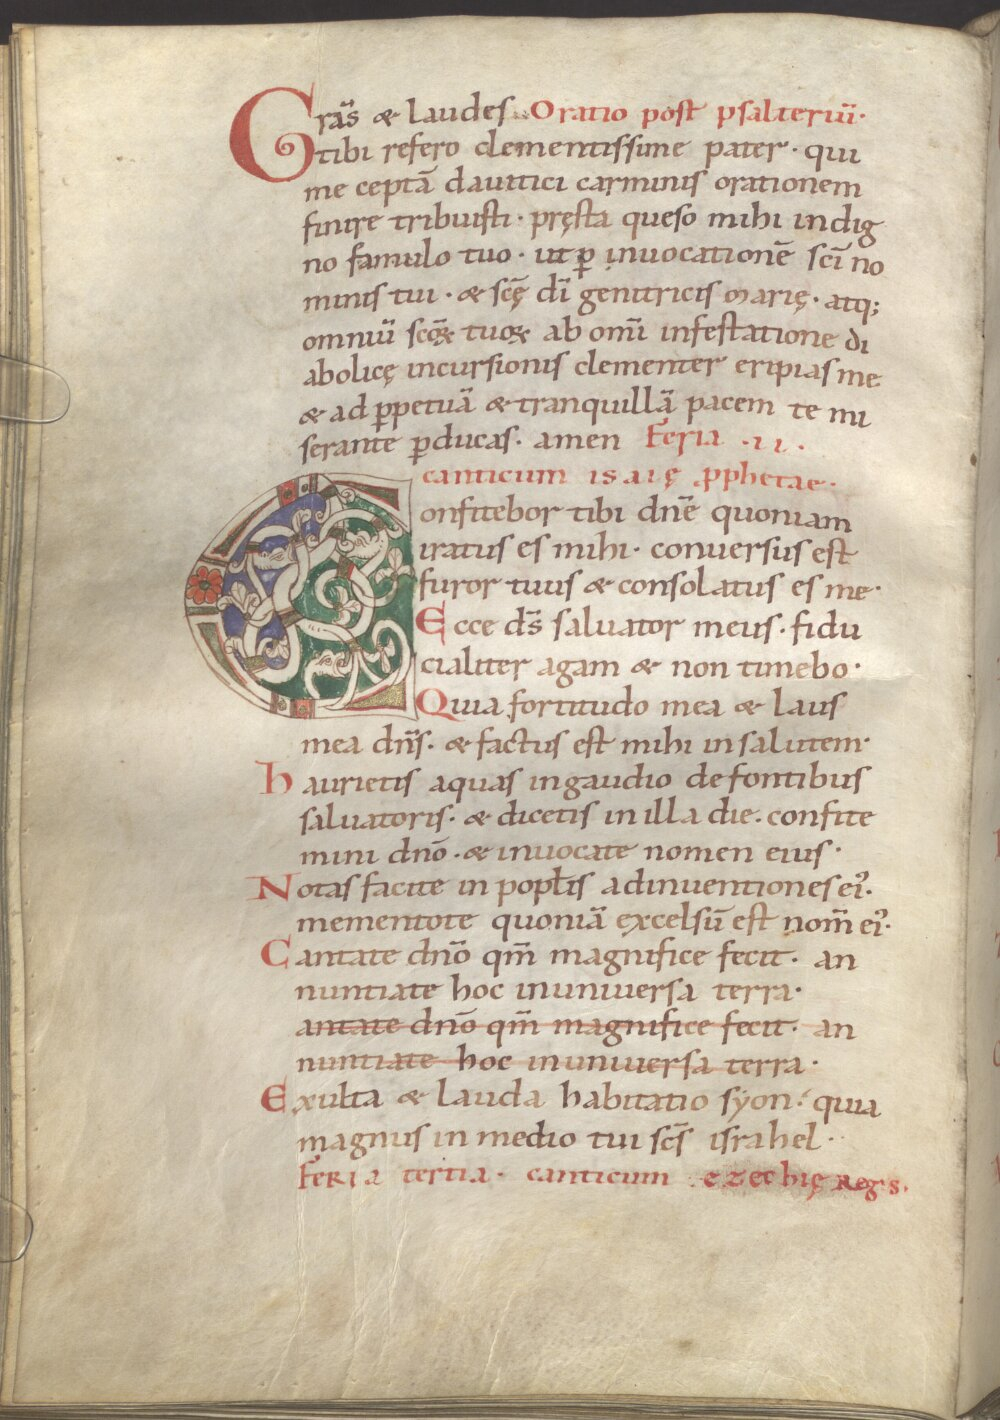 Grãs & laudes Oratio post psalteriũ·
tibi refero clementissime pater· qui
me ceptã dauitici carminis orationem
finire tribuisti· pręsta queso mihi indig
no famulo tuo· ut ꝑ inuocationẽ scĩ no
minis tui· & scę̃ dĩ genitricis marię· atq;
omniũ scõꝝ tuoꝝ ab omĩ infestatione di
abolicę incursionis clementer eripias me
& ad ꝑpetuã & tranquillã pacem te mi
serante ꝑducas· amen Feria ·ii·
canticum isaię ꝓphetae·
Confitebor tibi dñe quoniam
iratus es mihi· conuersus est
furor tuus & consolatus es me·
Ecce dñs saluator meus· fidu
cialiter agam & non timebo·
Quia fortitudo mea & laus
mea dñs· & factus est mihi in salutem·
haurietis aquas ingaudio de fontibus
saluatoris· & dicetis in illa die· confite
mini dño· & inuocate nomen eius·
Notas facite in popłis adinuentiones ei᾽·
mementote quoniã excelsũ est nom̃ ei᾽·
Cantate dño qm̃ magnifice fecit· an
nuntiate hoc inuniuersa terra·
antate dño qm̃ magnifice fecit· an
nuntiate hoc inuniuersa terra·
Exulta & lauda habitatio syon· quia
magnus in medio tui scs̃ israhel·
Feria tertia· canticum ezechię Regis.